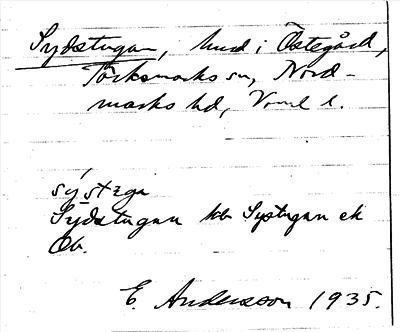 Sydstugan, hmd i Östegård,
Töcksmarks sn, Nord-
marks hd, Vrml l.
sýstega
Sydstugan hb Systugan ek
Ob.
E. Andersson 1935.